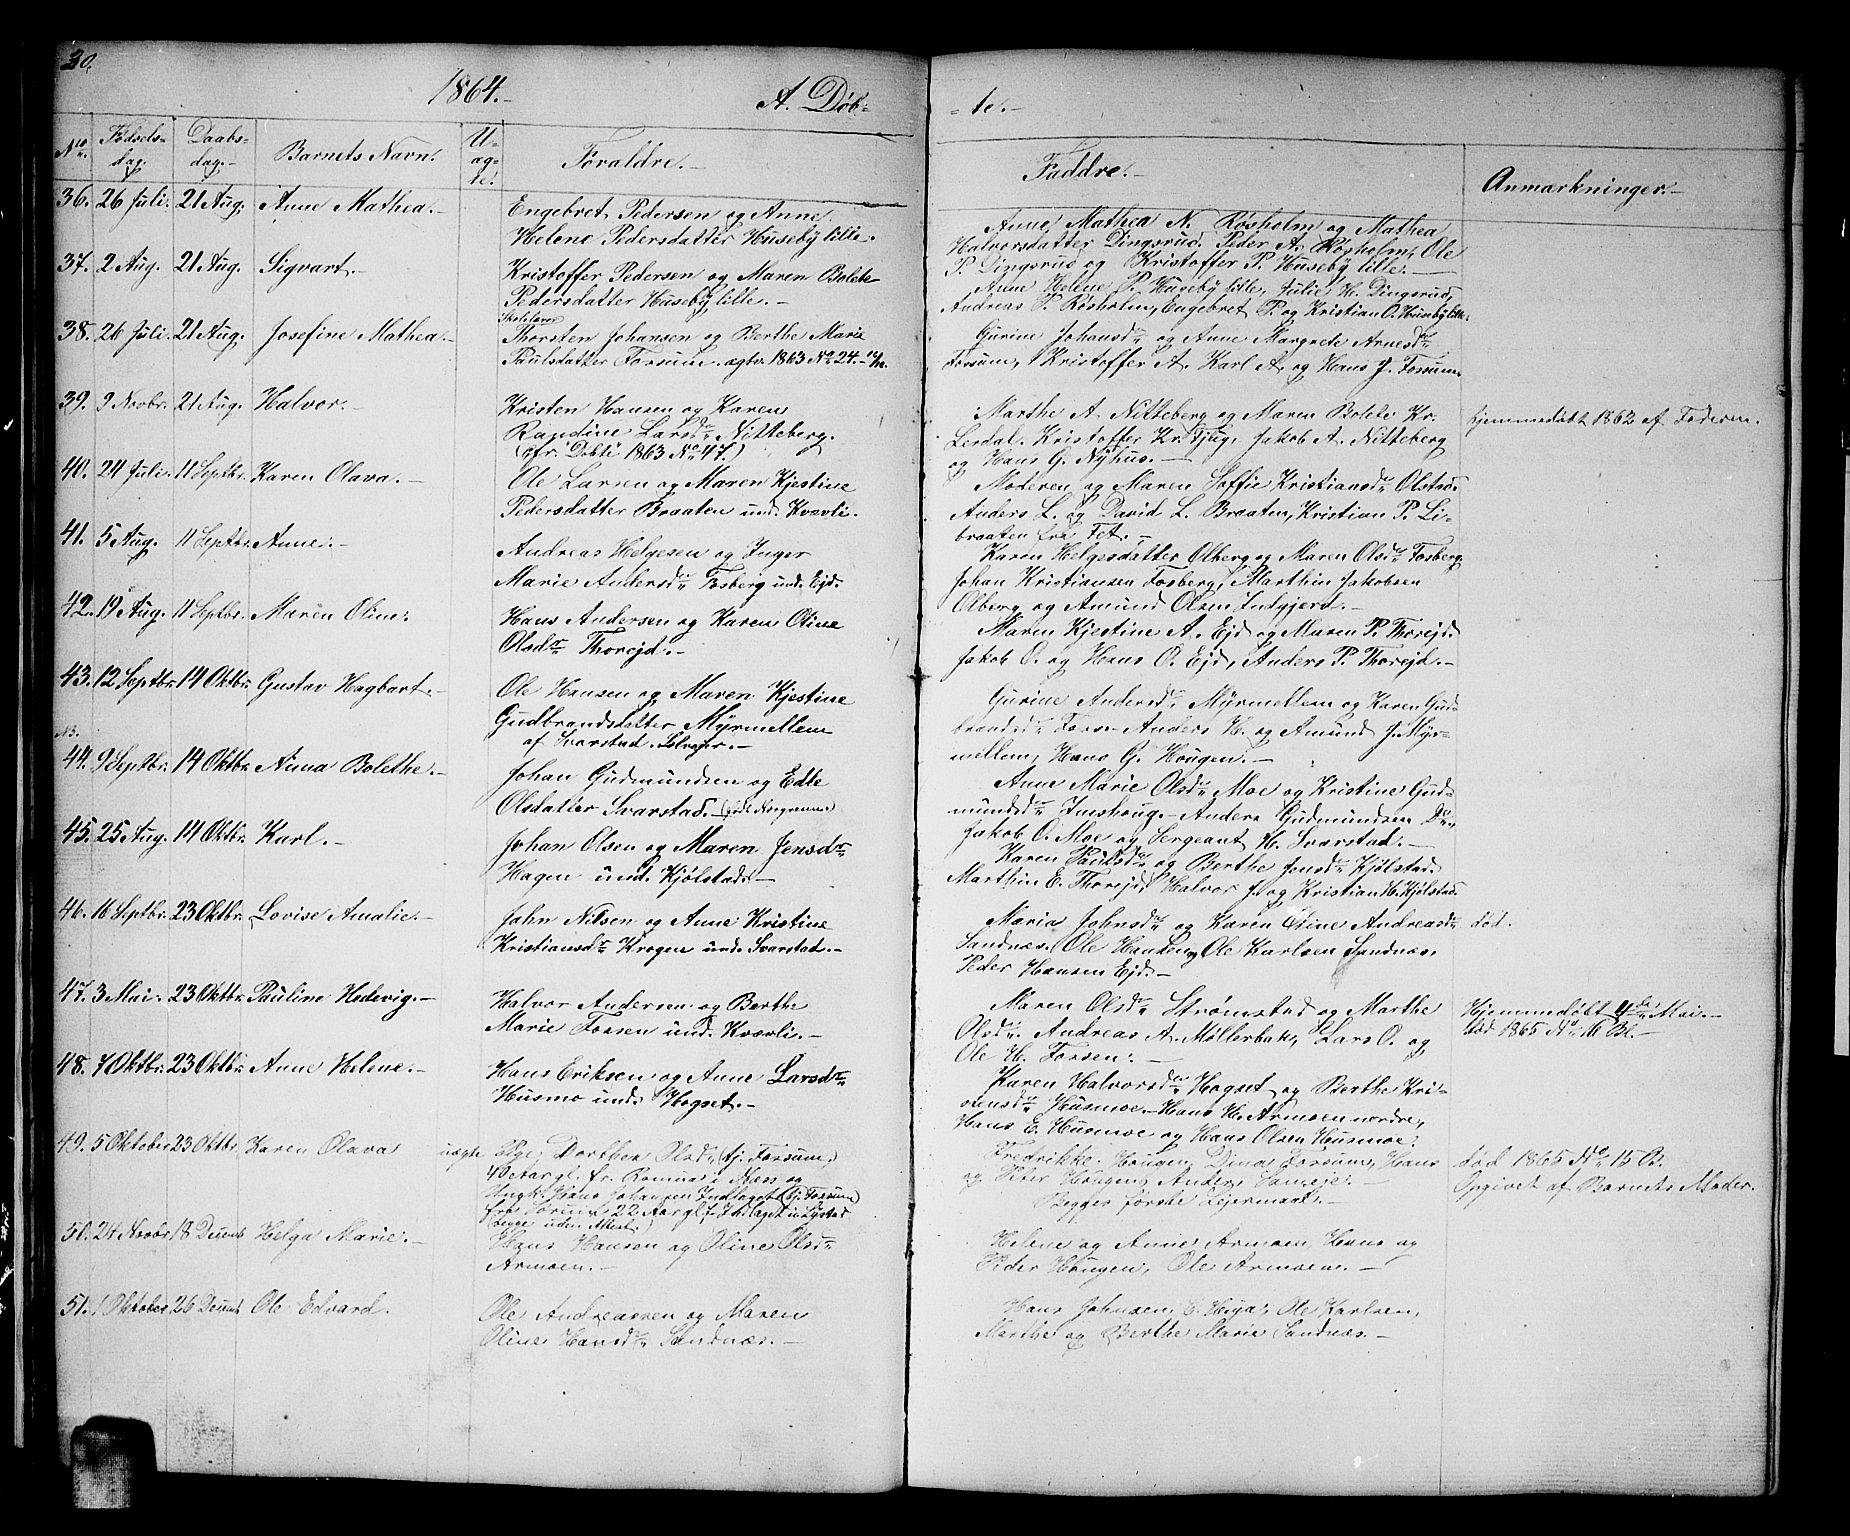 30.
1864.-
A. Døb-
-te.-
No.
Fødsels-
dag.
Daabs-
dag.-
Barnets Navn.
U-
æg-
te.
Forældre.-
Faddre.-
Anmærkninger.-
36. 26 Juli. 21 Aug. Anne Mathea.-
Engebret Pedersen og Anne
Helene Pedersdatter Huseby lille.
Anne Mathea N. Røsholm og Mathea
Halvorsdatter Dingsrud. Peder A. Røsholm, Ole
P. Dingsrud og Kristoffer P. Huseby lille.-
37. 2 Aug. 21 Aug. Sigvart.-
Kristoffer Pedersen og Maren Bolete
Pedersdatter Huseby lille.-
Anne Helene P. Huseby lille, Julie H. Dingsrud,
Andreas P. Røsholm, Engebret P. og Kristian O. Huseby lille.
38. 26 Juli. 21 Aug. Josefine Mathea.-
Skolelærer
Thorsten Johansen og Berthe Marie
Paulsdatter Forsum. ægtev. 1863 No 24.
Gurine Johansdr og Anne Margrete Arnesdr
Forsum, Kristoffer A. Karl A. og Hans J. Forsum.
39. 9 Novbr. 21 Aug. Halvor.-
Kristen Hansen og Karen
Randine Larsdr Nitteberg.
(cfr. Døbte 1863 No 47.)
Marthe A. Nitteberg og Maren Bolete Kr.
Lerdal. Kristoffer Kr. Tjug, Jakob A. Nitteberg
og Hans G. Nyhus.-
hjemmedøbt 1862 af Faderen.
40. 24 Juli. 11 Septbr. Karen Olava.-
Ole Larsen og Maren Kjestine
Pedersdatter Braaten und. Kvævli.-
Moderen og Maren Soffie Kristiansdr Olstad.
Anders L. og David L. Braaten, Kristian P. Li-
braaten fra Fet.-
41. 5 Aug. 11 Septbr. Anne.-
Andreas Helgesen og Inger
Marie Andersdr Fosberg und. Ejd.
Karen Helgesdatter Olberg og Maren Olsdr Fosberg
Johan Kristiansen Fosberg, Marthin Jakobsen
Olberg og Amund Olsen Indgjerd.-
42. 19 Aug. 11 Septbr. Maren Oline.
Hans Andersen og Karen Otine
Olsdr Thorejd.-
Maren Kjestine A. Ejd og Maren P. Thorejd.
Jakob O. og Hans O. Ejd, Anders P. Thorejd.-
43. 12 Septbr. 14 Oktbr. Gustav Hagbart.-
Ole Hansen og Maren Kjestine
Gudbrandsdatter Myrmellem
af Svarstad.
Gurine Andersdr Myrmellem og Karen Gud-
brandsdr Anders H. og Amund J. Myr-
mellem, Hans G. Hougen.-
44. 9 Septbr. 14 Oktbr. Anna Bolethe.-
Johan Gudmundsen og Edle
Olsdatter Svarstad.
Anne Marie Olsdr Moe og Kristine Gud-
mundsdr Imshoug.- Anders Gudmundsen Do
Jakob O. Moe og Sergeant H. Svarstad.-
45. 25 Aug. 14 Oktbr. Karl.-
Johan Olsen og Maren Jensdr
Hagen und. Kjølstad.-
Karen Paulsdr og Berthe Jensdr Kjølstad.
Marthin E. Thorejd, Halvor J. og Kristian H. Kjølstad.
46. 16 Septbr. 23 Oktbr. Lovise Amalie.-
Jahn Nilsen og Anne Kristine
Kristiansdr Krogen und. Svarstad.-
Maria Johnsdr og Karen Otine Andreasdr
Sandnæs. Ole Hansen, Ole Karlsen Sandnæs,
Peder Hansen Ejd.-
død.
47. 3 Mai. 23 Oktbr. Pauline Hedevig.-
Halvor Andersen og Berthe
Marie Forsen und. Kvævli.-
Maren Olsdr Strømstad og Marthe
Olsdr. Andreas A. Møllerbak, Lars O. og
Ole H. Forsen.-
Hjemmedøbt 4de Mai.-
død 1865 No 16
48. 7 Oktbr. 23 Oktbr. Anne Helene.-
Hans Eriksen og Anne Larsdr
Husmo und. Hogset.-
Karen Halvorsdr Hogset og Berthe Kri-
stensdr Husmoe.- Hans H. Armoen nordre,
Hans E. Husmoe og Hans Olsen Husmoe.
49. 5 Oktober 23 Oktbr. Karen Olava
uægte
Pige Dorthea Olsdr (tj. Forsum)
fr. Romnæs i Næs og
Ungk. Hans Johansen Indlaget (tj. Forsum)
22 Aar gl.
begge uden Attest.)
Fredrikke Hougen, Dina Forsum, Hans
og Peter Hougen, Anders
Begges første Leiermaal.-
død 1865 No 15
Opgivet af Barnets Moder.
50. 24 Novbr 18 Decmb Helga Marie.-
Hans Hansen og Oline Olsdr
Armoen.-
Helene og Anne Armoen, Hans og
Peder Hougen, Ole Armoen.-
51. 1 Oktober 26 Decmb Ole Edvard.
Ole Andreassen og Maren
Oline Hansdr Sandnæs.-
Hans Johnsen, Ole Karlsen,
Marthe og Berthe Marie Sandnæs.-